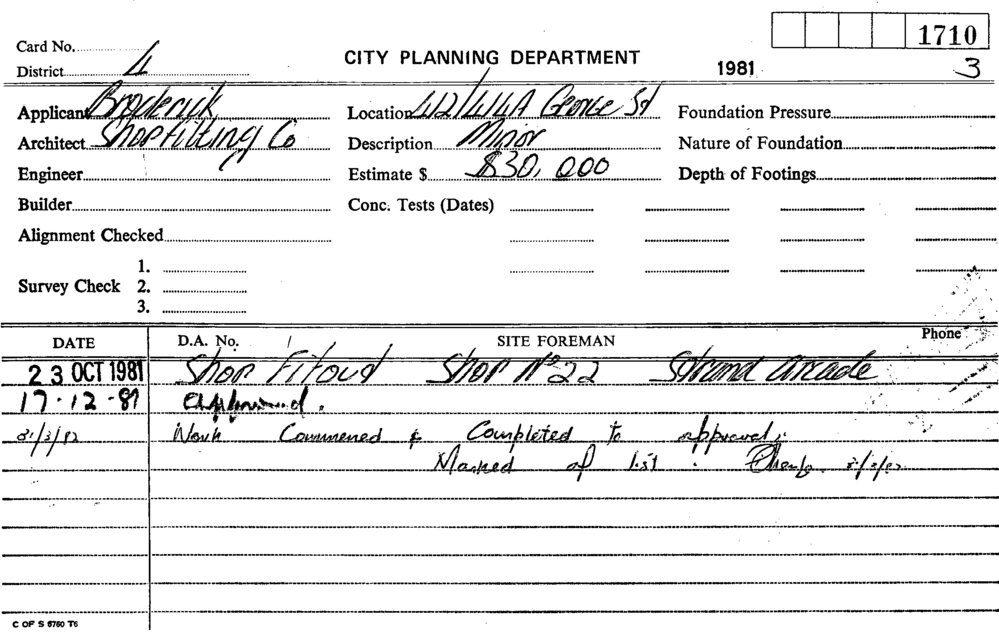 1710
Card No.
CITY PLANNING DEPARTMENT
1981
3
District 4
Applicant Broderick
Location 412/414A George St
Foundation Pressure
Architect Shopfitting Co
Description Minor
Nature of Foundation
Engineer
Estimate $ $30,000
Depth of Footings
Builder
Conc. Tests (Dates)
Alignment Checked
1.
Survey Check 2.
3.
DATE
D.A. No.
SITE FOREMAN
Phone
23 OCT 1981 Shop Fitout Shop No 22 Strand Arcade
17.12.81 approved.
31/3/82 Work Commened & Completed to approval.
Marked of list.
C OF S 6760 T6